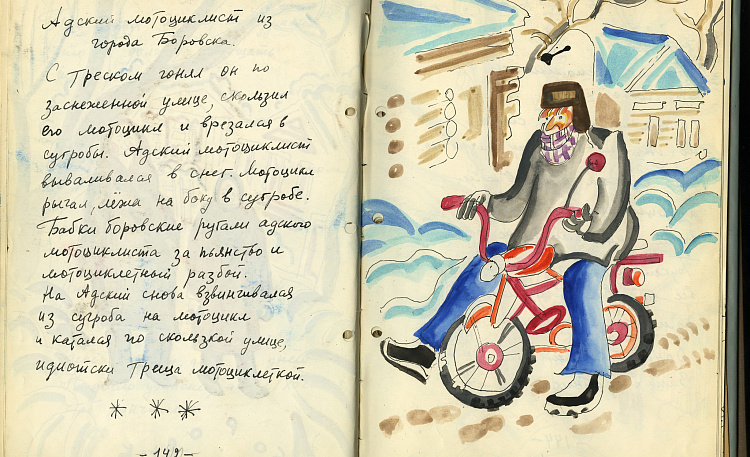 Адский мотоциклист из
города Боровска.
С треском гонял он по
заснеженной улице, скользил
его мотоцикл и врезался в
сугробы. Адский мотоциклист
вываливался в снег. Мотоцикл
рычал, лёжа на боку в сугробе.
Бабки боровские ругали адского
мотоциклиста за пьянство и
мотоциклетный разбой.
На Адский снова взвинчивался
из сугроба на мотоцикл
и катался по скользкой улице,
идиотски треща мотоциклеткой.
* * *
- 149 -